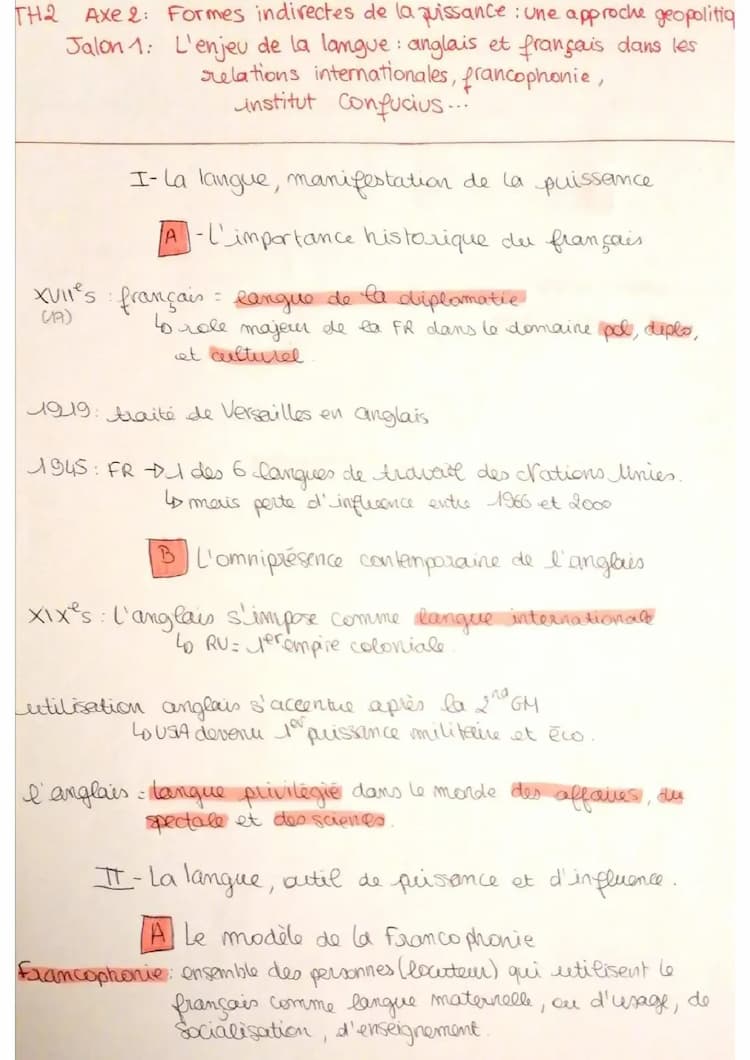 TH2 Axe 2: Formes indirectes de la puissance : une approche geopolitiq
Jalon 1: L'enjeu de la langue : anglais et français dans les
relations internationales, francophonie,
institut Confucius...
I- La langue, manifestation de la puissance
A - L'importance historique du français
XVIIes : français = langue de la diplomatie
(17)
↳ role majeur de la FR dans le domaine pol, diplo,
et culturel.
1919: traité de Versailles en anglais
1945: FR → 1 des 6 langues de travail des Nations Unies.
↳ mais perte d'influence entre 1966 et 2000
B L'omniprésence contemporaine de l'anglais
XIXes : L'anglais s'impose comme langue internationale
↳ RU = 1er empire coloniale.
utilisation anglais s'accentue après la 2nd GM
↳ USA devenu 1er puissance militaire et éco.
l'anglais = langue privilégié dans le monde des affaires, du
spectale et des sciences.
II- La langue, outil de puissance et d'influence.
A Le modèle de la Francophonie
Francophonie: ensemble des personnes (locuteur) qui utilisent le
français comme langue maternelle, ou d'usage, de
socialisation, d'enseignement.